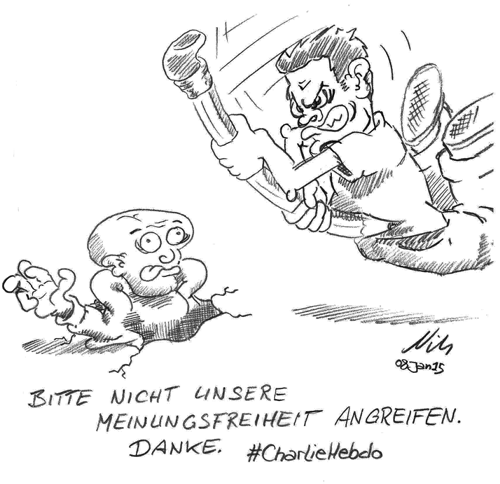 Nils
08.Jan15
BITTE NICHT UNSERE
MEINUNGSFREIHEIT ANGREIFEN.
DANKE. #CharlieHebdo